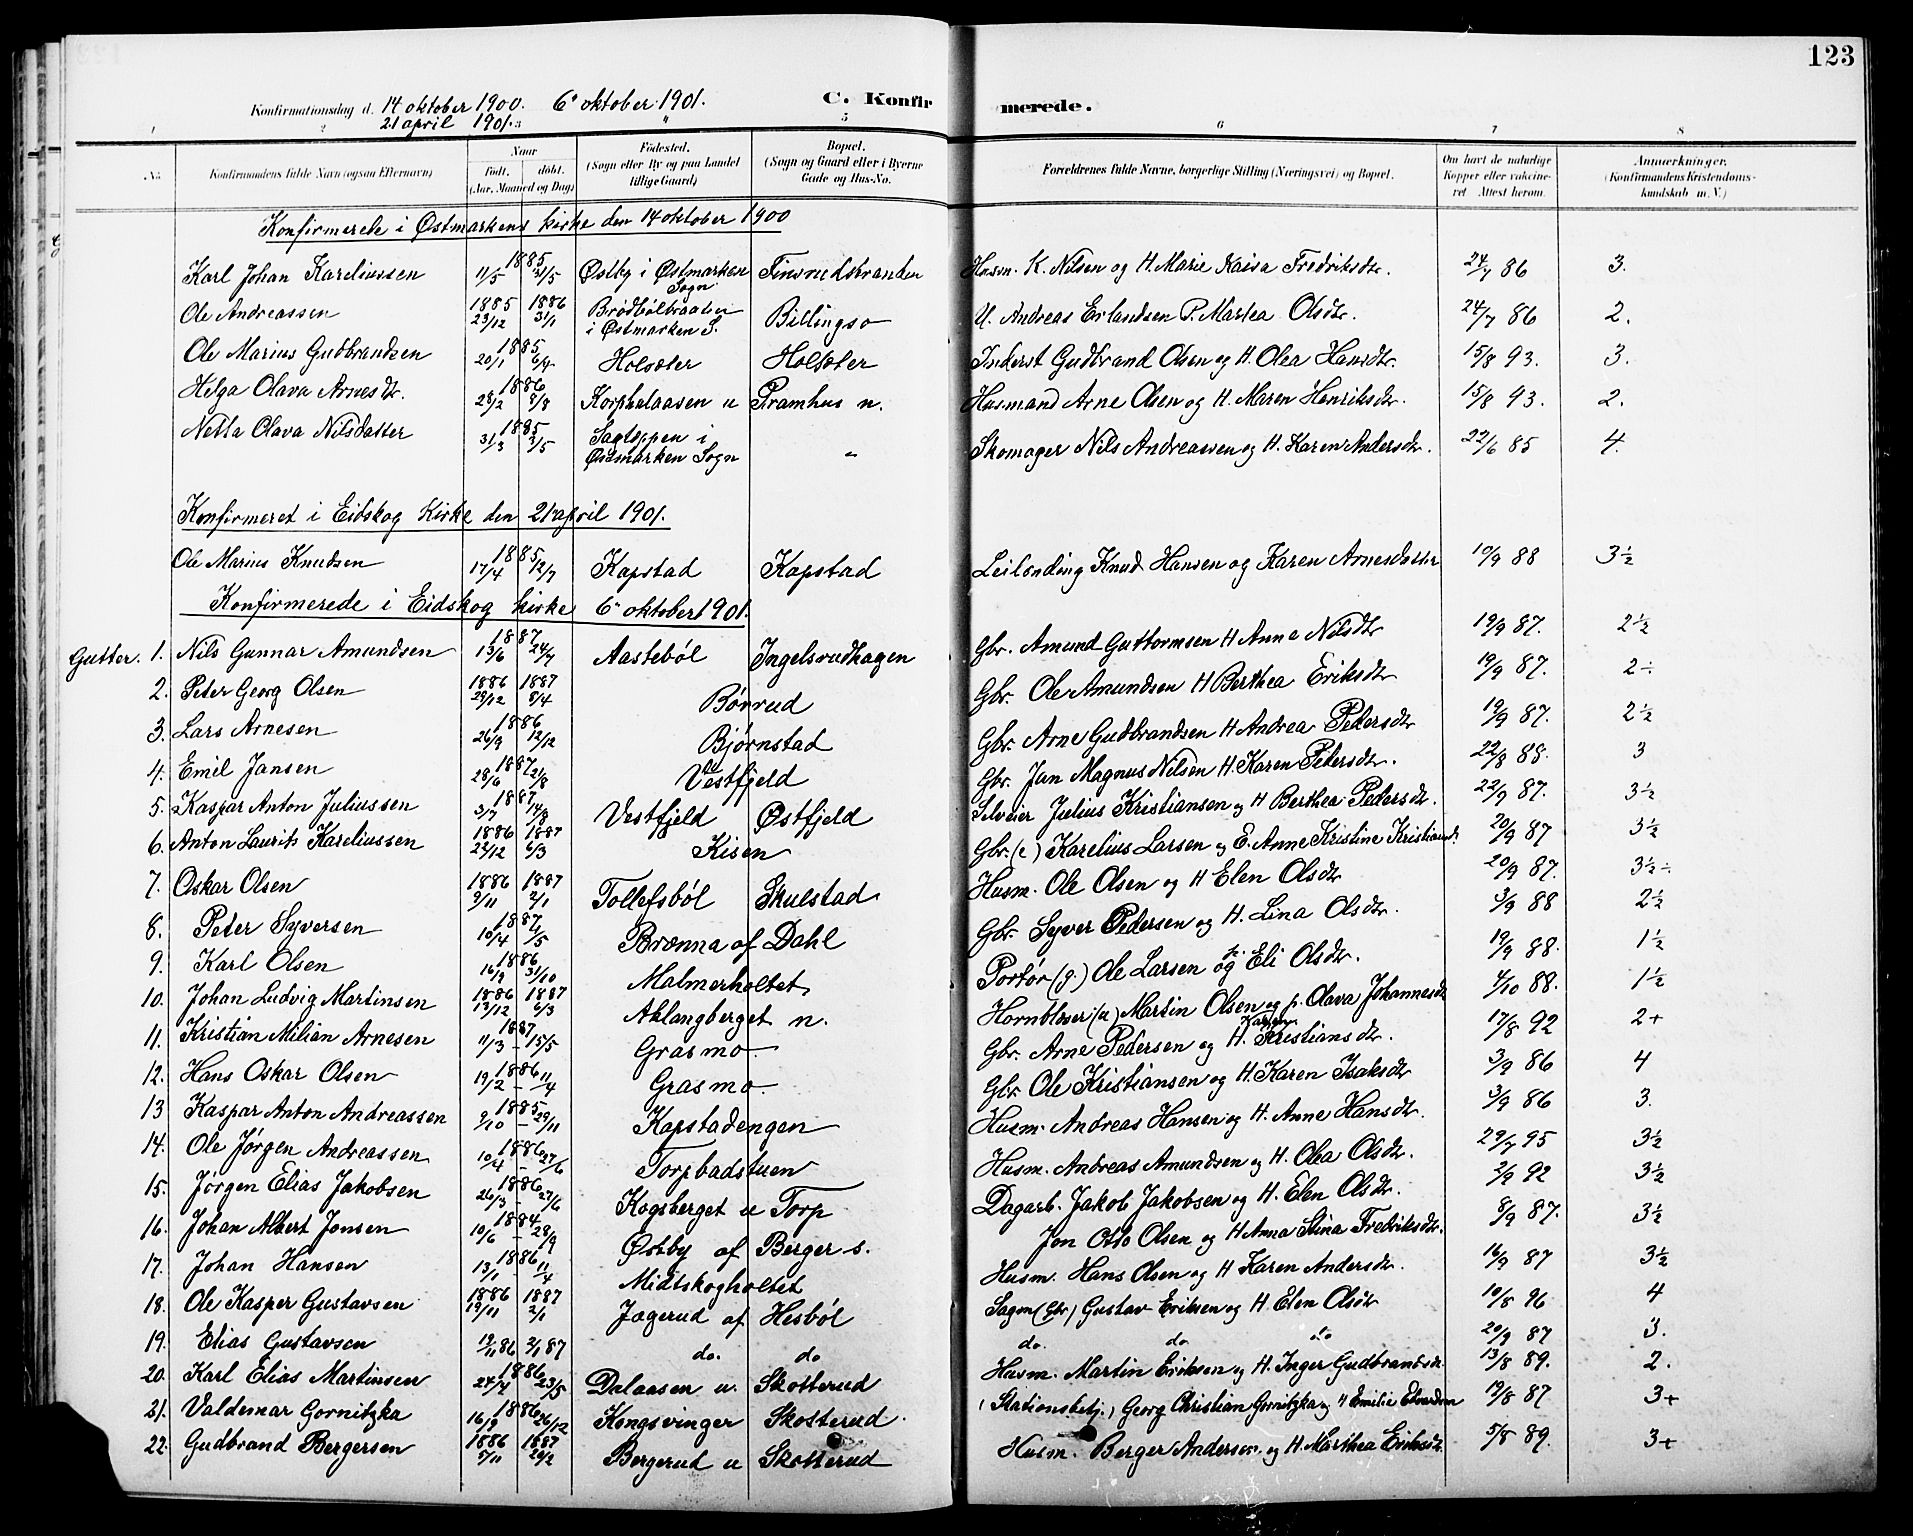 123
Konfirmationsdag d. 14 oktober 1900. 6' oktober 1901. C. Konfirmerede.
21 april 1901.
1 2 3 4 5 6 7 8
No. Konfirmandens fulde Navn (ogsaa Efternavn) Naar Født. døbt. (Aar, Maaned og Dag) Fødested. (Sogn eller By og paa Landet tillige Gaard) Bopæl. (Sogn og Gaard eller i Byerne Gade og Hus-No. Forældrenes fulde Navne, borgerlige Stilling (Næringsvei) og Bopæl. Om havt de naturlige Kopper eller vakcineret. Attest herom. Anmerkninger. (Konfirmandens Kristendomskundskab m. V.)
Konfirmerede i Østmarkens kirke den 14 oktober 1900
Karl Johan Kareliussen 1885 11/5 31/5 Østby i Østmarken Sogn Finsrudstranden Husm. K. Nilsen og H. Marie Kaisa Fredriksdtr. 24/7 86 3.
Ole Andreassen 1885 23/12 1886 3/1 Brødbølbraaten i Østmarken S. Billingso U. Andreas Erlandsen P. Martea Olsdtr. 24/7 86 2.
Ole Marius Gudbrandsen 1885 20/1 6/4 Holsæter Holsæter Inderst Gudbrand Olsen og H. Olea Hansdtr. 15/8 93. 3.
Helga Olava Arnesdtr. 1886 28/2 8/8 Korpholaasen u Pramhus n. Husmand Arne Olsen og H. Maren Henriksdtr. 15/8 93. 2.
Netta Olava Nilsdatter 1885 31/3 3/5 Sagtoppen i Østmarken Sogn " Skomager Nils Andreassen og H. Karen Andersdtr. 22/6 85 4.
Konfirmeret i Eidskog Kirke den 21 april 1901.
Ole Marius Knudsen 1885 17/4 12/7 Kapstad Kapstad Leilænding Knud Hansen og Karen Arnesdatter 10/9 88 3½
Konfirmerede i Eidskog kirke 6' oktober 1901.
Gutter. 1. Nils Gunnar Amundsen 1887 13/6 24/7 Aastebøl Ingelsrudhagen Gbr. Amund Guttormsen H Anne Nilsdtr 19/9 87. 2½
2. Peter Georg Olsen 1886 29/12 1887 8/4 Børrud Gbr. Ole Amundsen H Berthea Eriksdtr 19/9 87. 2÷
3. Lars Arnesen 1886 26/9 12/12 Bjørnstad Gbr. Arne Gudbrandsen H Andrea Pedersdtr 19/9 87. 2½
4. Emil Jansen 1887 28/6 2/8 Vestfjeld Gbr. Jan Magnus Nilsen H. Karen Pedersdtr. 22/8 88. 3
5. Kaspar Anton Juliussen 1887 3/7 14/8 Vestfjeld Østfjeld Selveier Julius Kristiansen og H Berthea Pedersdtr. 22/9 87. 3½
6. Anton Laurits Kareliussen 1886 22/12 1887 6/3 Kisen Gbr. (e) Karelius Larsen og E. Anne Kristine Kristiansd. 20/9 87 3½
7. Oskar Olsen 1886 9/11 1887 2/1 Tollefsbøl Skulstad Husm. Ole Olsen og H Elen Olsdtr 20/9 87. 3½÷
8. Peter Syversen 1887 10/4 1/5 Brænna af Dahl Gbr. Syver Pedersen og H. Lina Olsdtr. 3/9 88 2½
9. Karl Olsen 1886 16/9 31/10 Malmerholtet Portør (g.) Ole Larsen og p. Eli Olsdtr. 19/9 88. 1½
10. Johan Ludvig Martinsen 1886 13/12 1887 6/3 Aklangberget n. Hornblæser (u) Martin Olsen og p. Olava Johannesdtr 4/10 88. 1½
11. Kristian Milian Arnesen 1887 11/3 – 15/5 Grasmo Gbr. Arne Pedersen og H. Karen Kristiansdtr. 17/8 92 2+
12. Hans Oskar Olsen 1886 19/2 – 11/4 Grasmo Gbr Ole Kristiansen og H. Karen Isaksdtr 3/9 86 4
13 Kaspar Anton Andreassen 1885 9/10 – 29/11 Kapstadengen Husm. Andreas Hansen og H. Anne Hansdtr. 3/9 86 3.
14. Ole Jørgen Andreassen 1886 10/4 – 27/6 Torpbadstuen Husm. Andreas Amundsen og H. Olea Olsdtr. 29/7 95 3½
15. Jørgen Elias Jakobsen 1886 26/3 – 27/6 Kogsberget u Torp Dagarb. Jakob Jakobsen og H. Elen Olsdtr. 2/9 92 3½
16. Johan Albert Jonsen 1884 10/6 – 28/9 Østby af Berger s. Jon Otto Olsen og H Anna Stina Fredriksdtr. 8/9 87. 3½
17. Johan Hansen 1886 13/1 – 11/4 Midtskogholtet Husm. Hans Olsen og H Karen Andersdtr. 16/9 87 3½
18. Ole Kasper Gustavsen 1886 19/11 1887 2/1 Jagerud af Hesbøl Sagm (Gbr) Gustav Eriksen og H Elen Olsdtr 10/8 96 4
19. Elias Gustavsen 19/11 86 2/1 87 do. do do. do. do 20/9 87 3.
20. Karl Elias Martinsen 1886 24/4 23/5 Dalaasen u. Skotterud Husm. Martin Eriksen og H. Inger Gudbrandsd. 13/8 89. 2.
21. Valdemar Gornitzka 1886 16/9 26/12 Kongsvinger Skotterud. (Stationsbetj.) Georg Christian Gornitzka og H Emilie Edvardsen 19/8 87 3+
22. Gudbrand Bergersen 1886 5/11 1887 20/2 Bergerud u Skotterud Husm. Berger Andersen og H. Marthea Eriksdtr 5/8 89. 3+